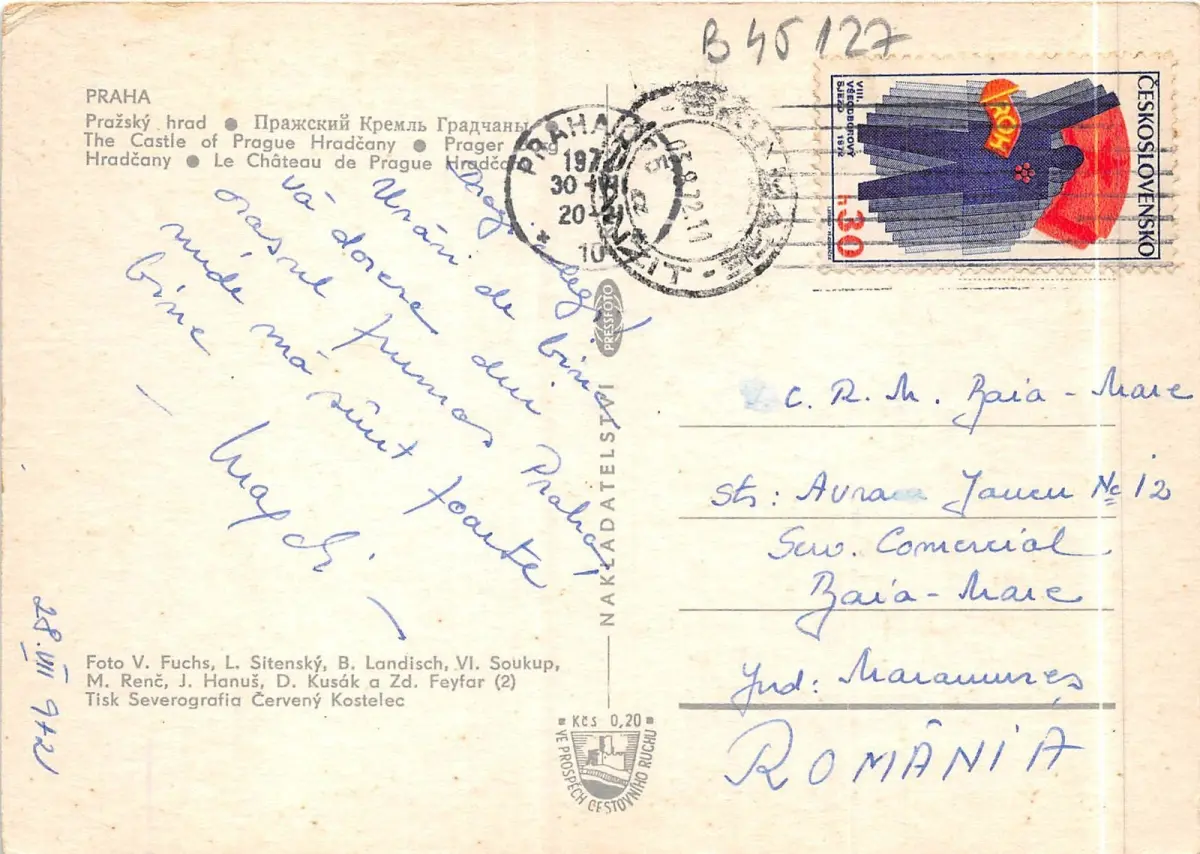 B 45 127
PRAHA
Pražský hrad ● Пражский Кремль Градчаны
The Castle of Prague Hradčany ● Prager
Hradčany ● Le Château de Prague
PRAHA
30
20
10
ČESKOSLOVENSKO
VIII.
VŠEODBOROVÝ
SJEZD 1972
ROH
h 30
Urări de bine
vă doresc din
orasul frumos Praha,
unde mă sûnt foarte
bine
28.VII 972
PRESSFOTO
NAKLADATELSTVÍ
C. R. M. Baia - Mare
Str: Avram Jancu No 12
Serv. Comercial
Baia - Mare
Jud: Maramureș
ROMÂNIA
Foto V. Fuchs, L. Sitenský, B. Landisch, Vl. Soukup,
M. Renč, J. Hanuš, D. Kusák a Zd. Feyfar (2)
Tisk Severografia Červený Kostelec
Kčs 0,20
VE PROSPĚCH CESTOVNÍHO RUCHU